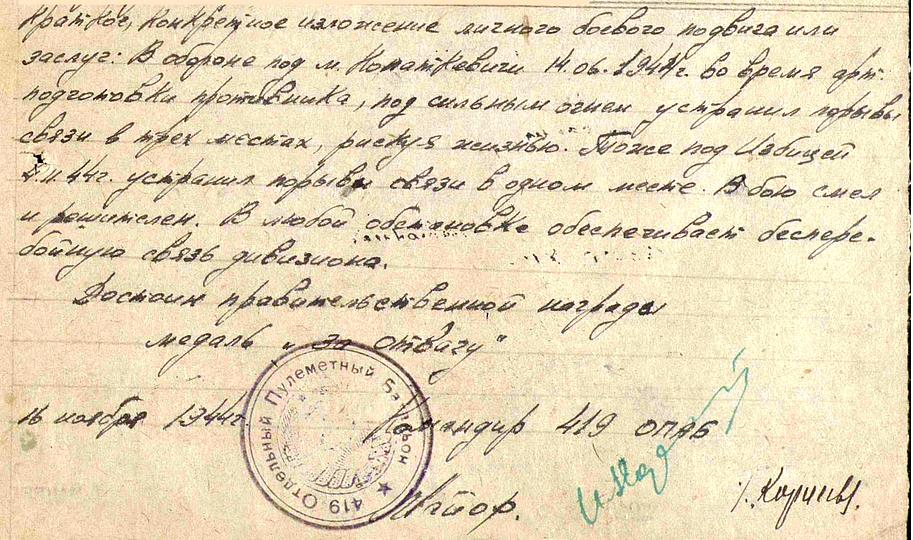 Краткое, конкретное изложение личного боевого подвига или
заслуг: В обороне под м. Копаткевичи 14.06.1944г. во время арт.
подготовки противника, под сильным огнем устранил порывы
связи в трех местах, рискуя жизнью. Тоже под Избицей
44г. устранил порывы связи в одном месте. В бою смел
и решителен. В любой обстановке обеспечивает беспере-
бойную связь дивизиона.
Достоин правительственной награды
медаль „за отвагу"
16 ноября 1944г.
Командир 419 ОПАБ
Майор.
419 Отдельный Пулеметный Батальон